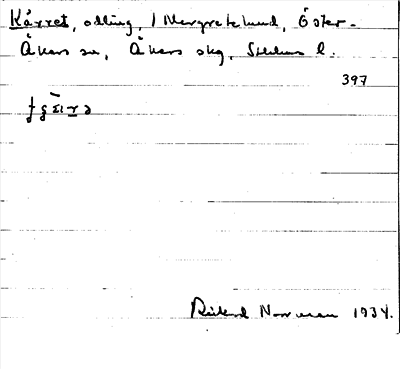 Kärret, odling, 1 Margretelund, Öster-
Åkers sn, Åkers skg, Sthlms l.
397
Rickard Norrman 1934.